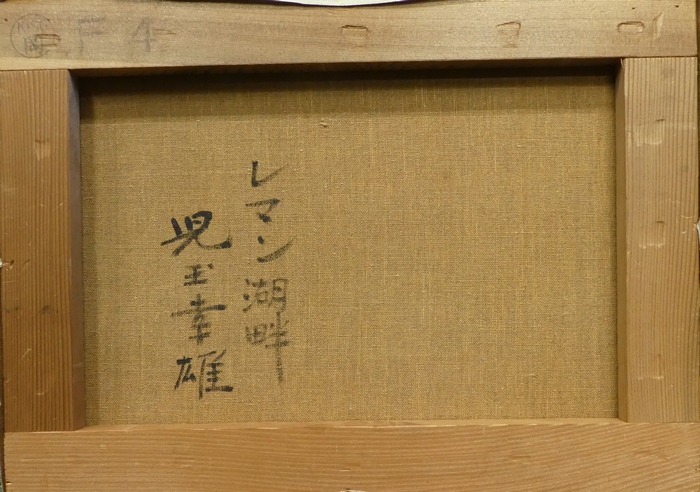 F4
レマン湖畔
児玉幸雄